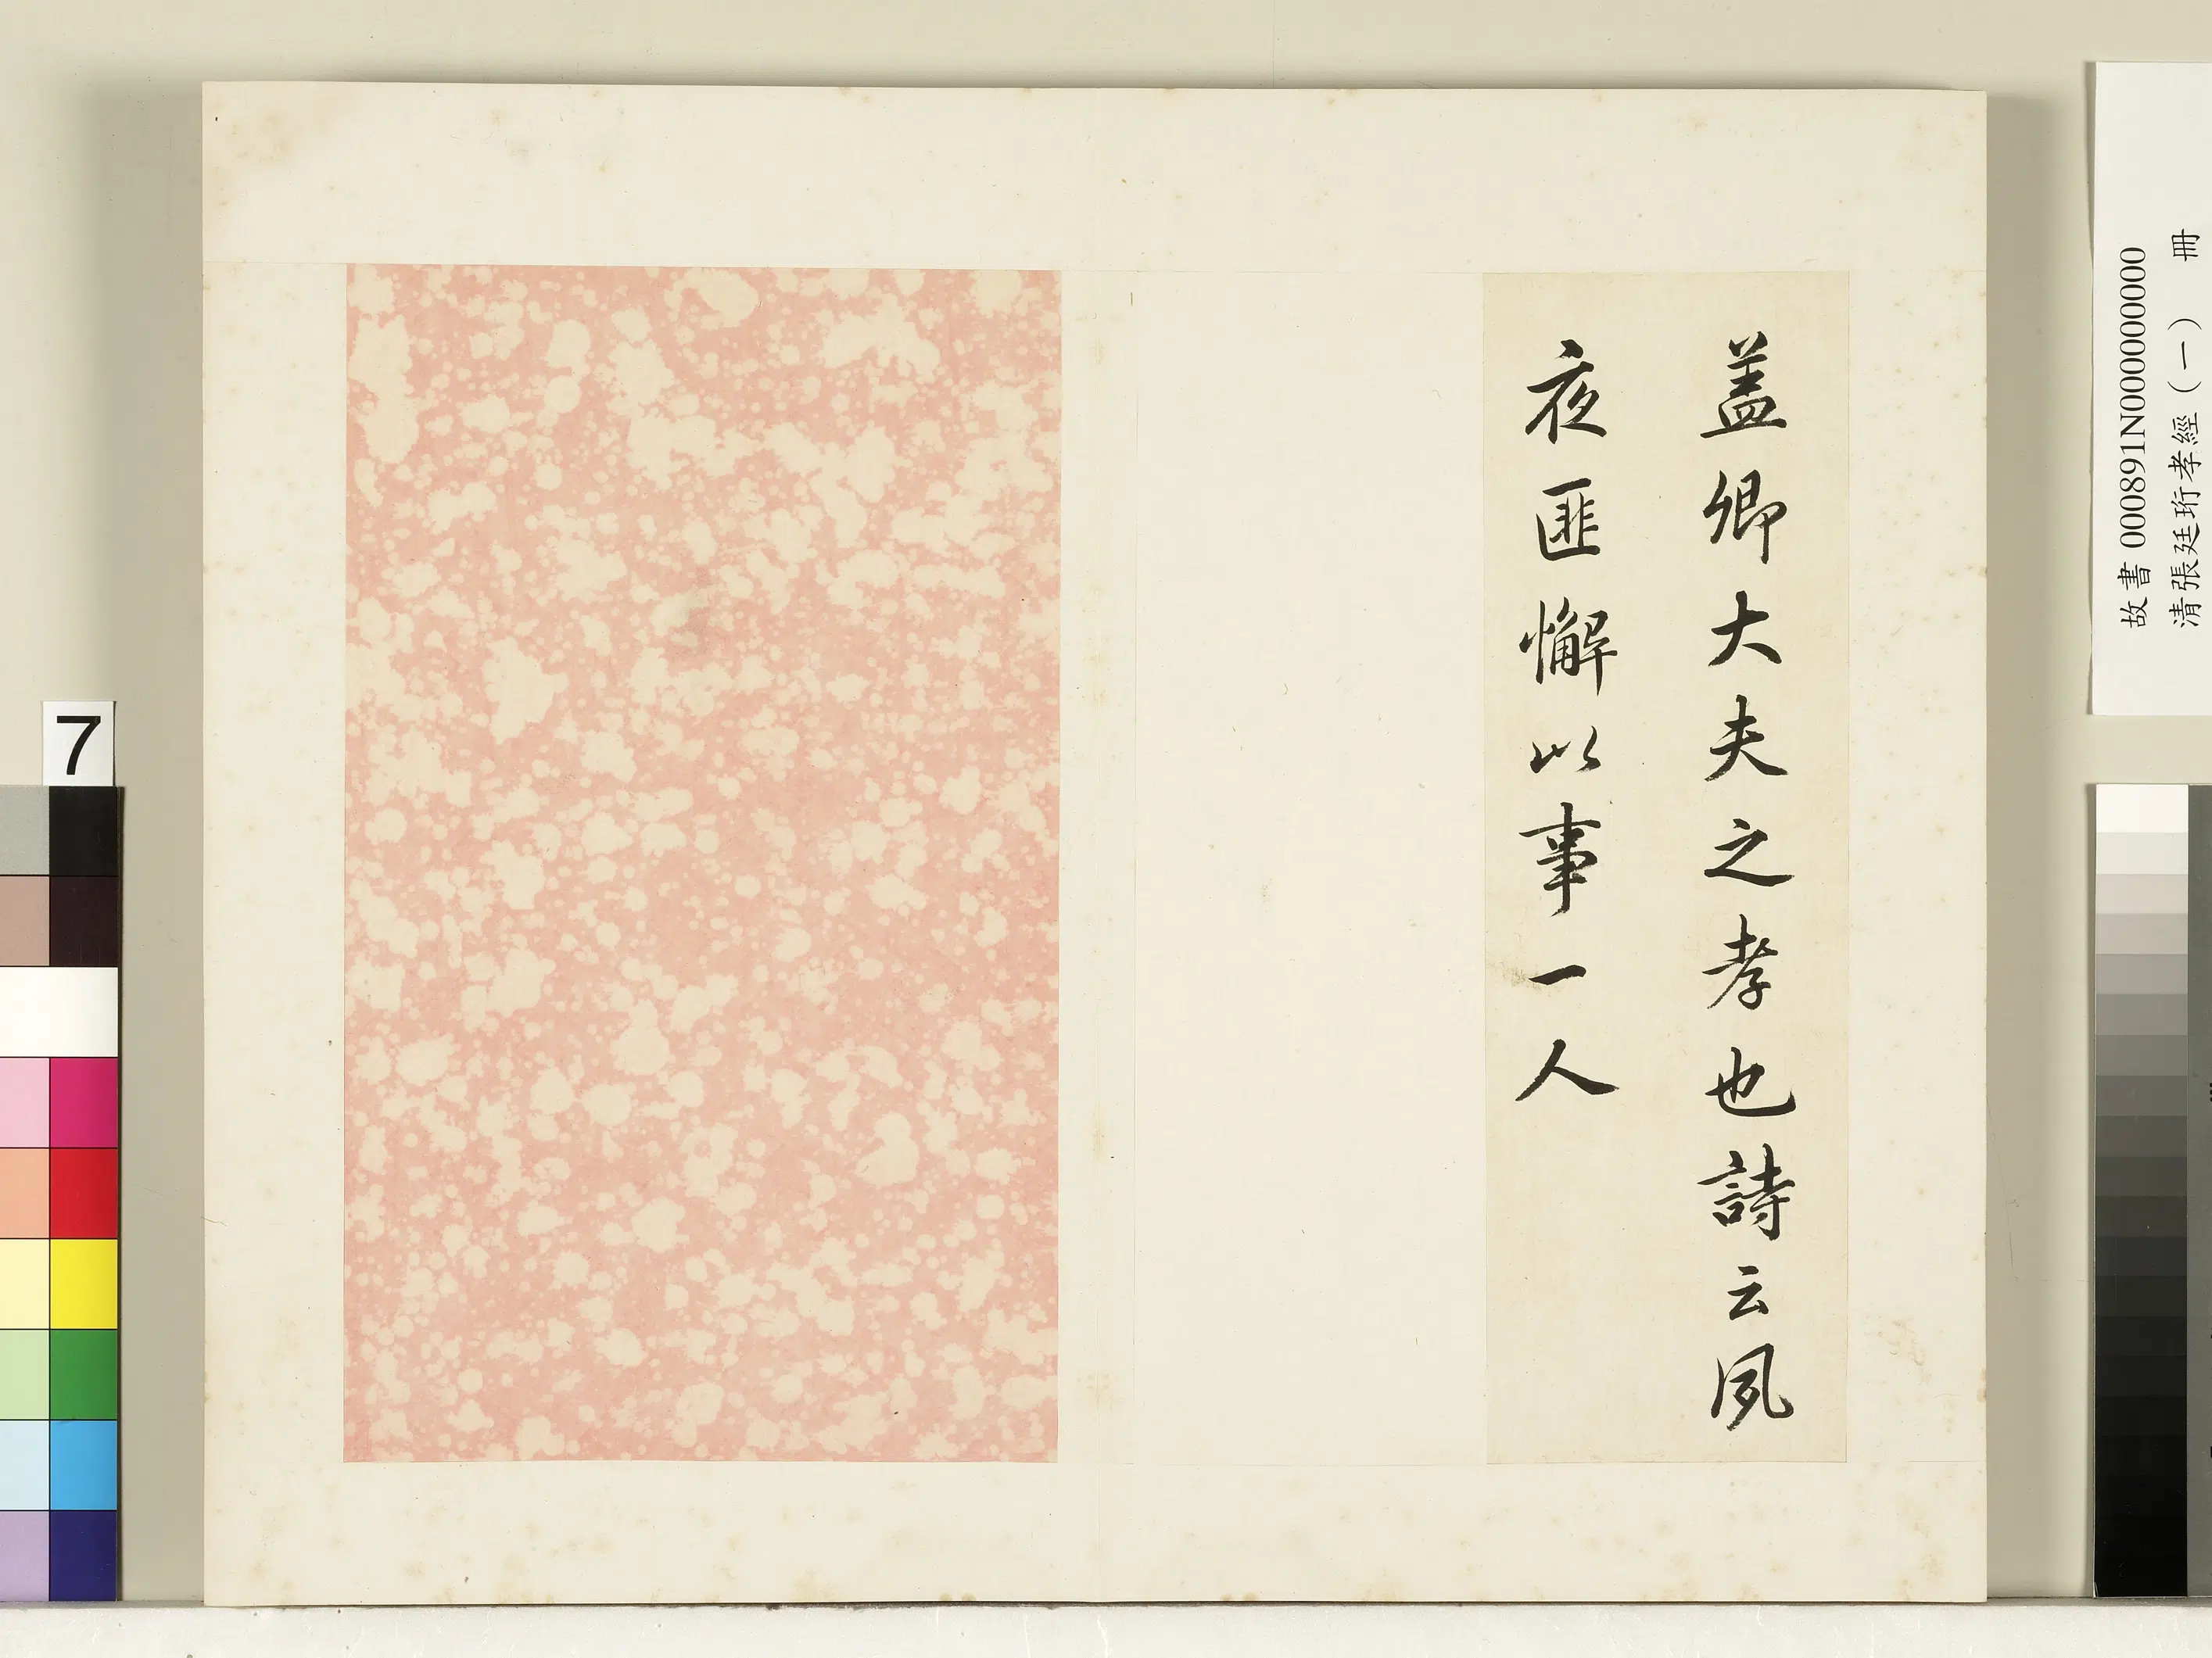 蓋卿大夫之孝也詩云夙
夜匪懈以事一人
故書 000891N000000000
清張廷珩孝經(一) 冊
7